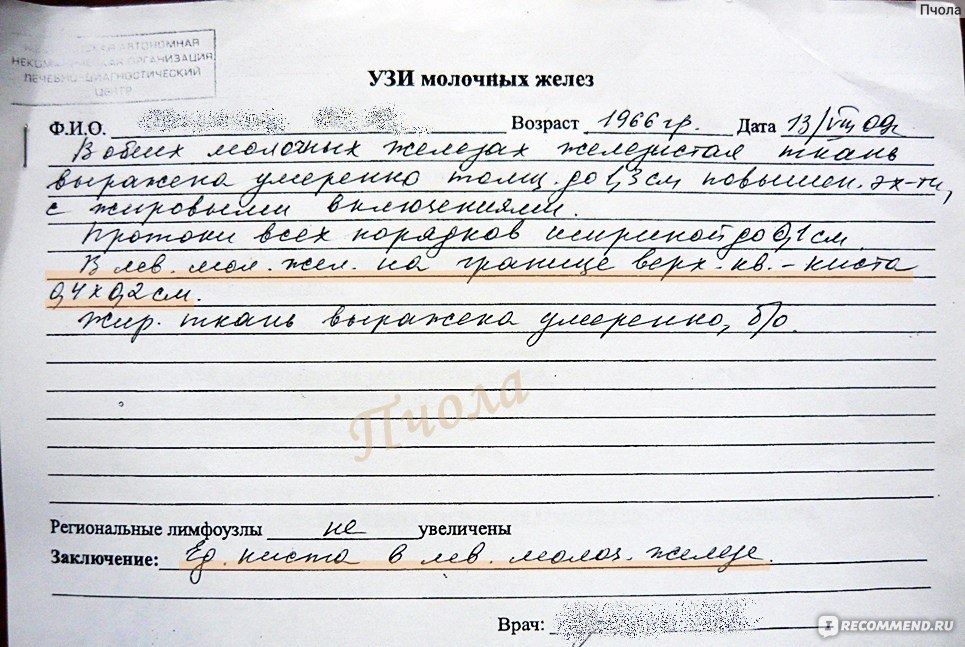 Пчола
АВТОНОМНАЯ
НЕКОММЕРЧЕСКАЯ ОРГАНИЗАЦИЯ
ЛЕЧЕБНО-ДИАГНОСТИЧЕСКИЙ
ЦЕНТР
УЗИ молочных желез
Ф.И.О. Возраст 1966 гр. Дата 13/VIII 09г
В обеих молочных железах железистая ткань
выражена умеренно толщ. до 1,3 см повышен. эх-ти,
с жировыми включениями.
Протоки всех порядков шириной до 0,1 см.
В лев. мол. жел. на границе верх. кв. - киста
0,4 х 0,2 см.
Жир. ткань выражена умеренно, б/о.
Пчола
Региональные лимфоузлы не увеличены
Заключение: Ед. киста в лев. молоч. железе.
Врач:
RECOMMEND.RU